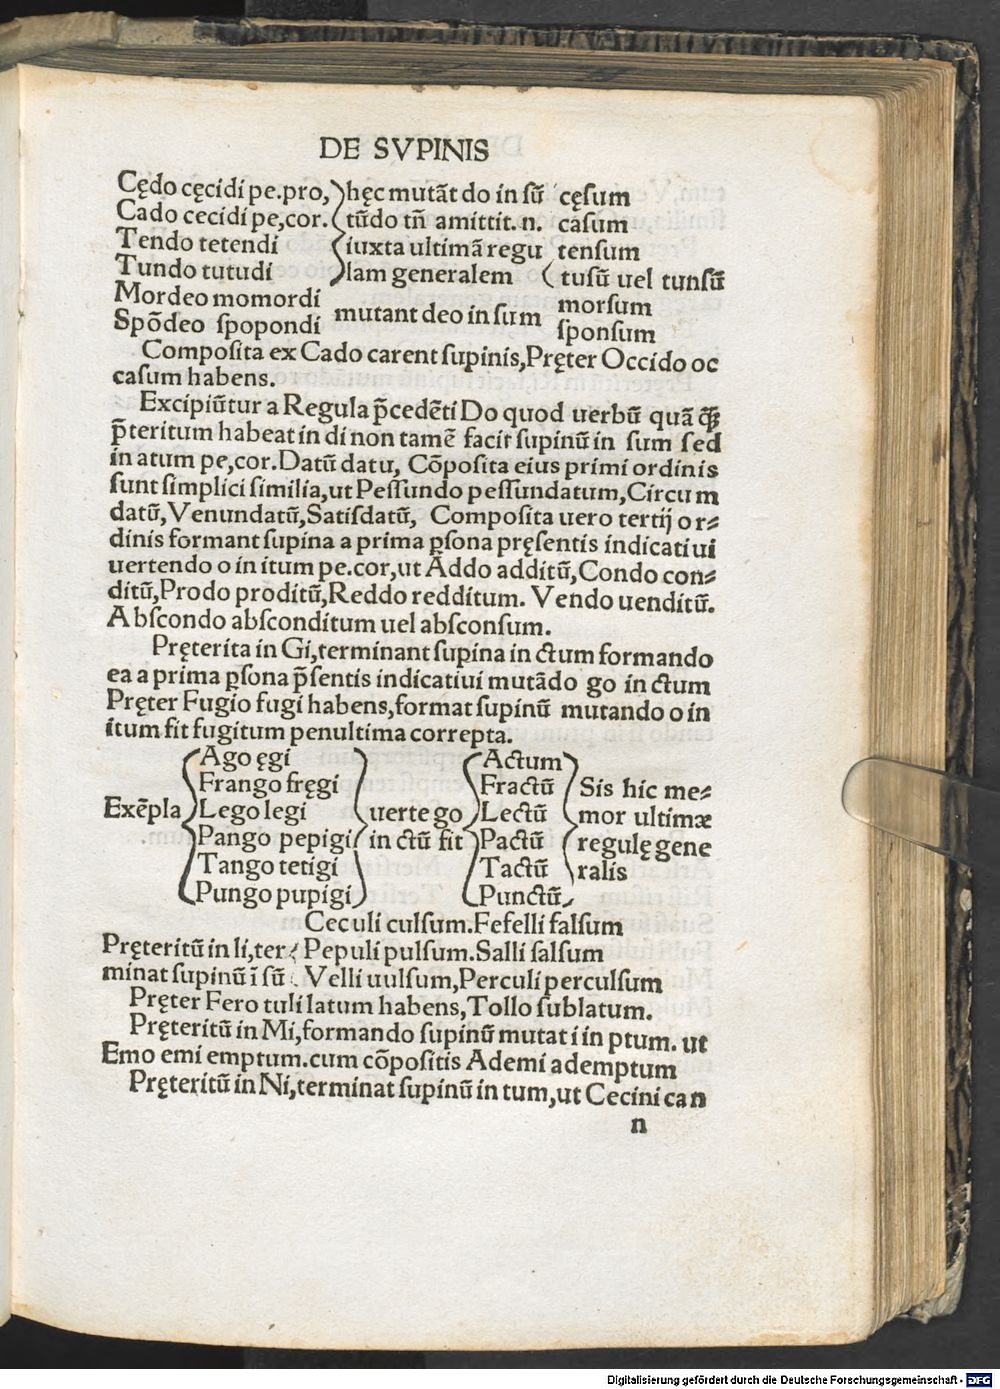 DE SVPINIS
Cędo cęcidi pe.pro, hęc mutāt do in sū cęsum
Cado cecidi pe,cor. tūdo tñ amittit.n. casum
Tendo tetendi iuxta ultimā regu tensum
Tundo tutudi lam generalem tusū uel tunsū
Mordeo momordi mutant deo in sum morsum
Spōdeo spopondi sponsum
Composita ex Cado carent supinis,Pręter Occido oc
casum habens.
Excipiūtur a Regula p̄cedēti Do quod uerbū quā
p̄teritum habeat in di non tamē facit supinū in sum sed
in atum pe,cor.Datū datu, Cōposita eius primi ordinis
sunt simplici similia,ut Pessundo pessundatum,Circum
datū,Venundatū,Satisdatū, Composita uero tertij or⸗
dinis formant supina a prima ꝑsona pręsentis indicatiui
uertendo o in itum pe.cor,ut Addo additū,Condo con⸗
ditū,Prodo proditū,Reddo redditum. Vendo uenditū.
Abscondo absconditum uel absconsum.
Pręterita in Gi,terminant supina in ctum formando
ea a prima ꝑsona p̄sentis indicatiui mutādo go in ctum
Pręter Fugio fugi habens,format supinū mutando o in
itum fit fugitum penultima correpta.
Ago ęgi Actum
Frango fręgi Fractū Sis hic me⸗
Exēpla Lego legi uerte go Lectū mor ultimæ
Pango pepigi in ctū fit Pactū regulę gene
Tango tetigi Tactū ralis
Pungo pupigi Punctū
Ceculi culsum.Fefelli falsum
Pręteritū in li,ter Pepuli pulsum.Salli salsum
minat supinū ī sū Velli uulsum,Perculi perculsum
Pręter Fero tuli latum habens,Tollo sublatum.
Pręteritū in Mi,formando supinū mutat i in ptum. ut
Emo emi emptum.cum cōpositis Ademi ademptum
Pręteritū in Ni,terminat supinū in tum,ut Cecini can
n
Digitalisierung gefördert durch die Deutsche Forschungsgemeinschaft - DFG